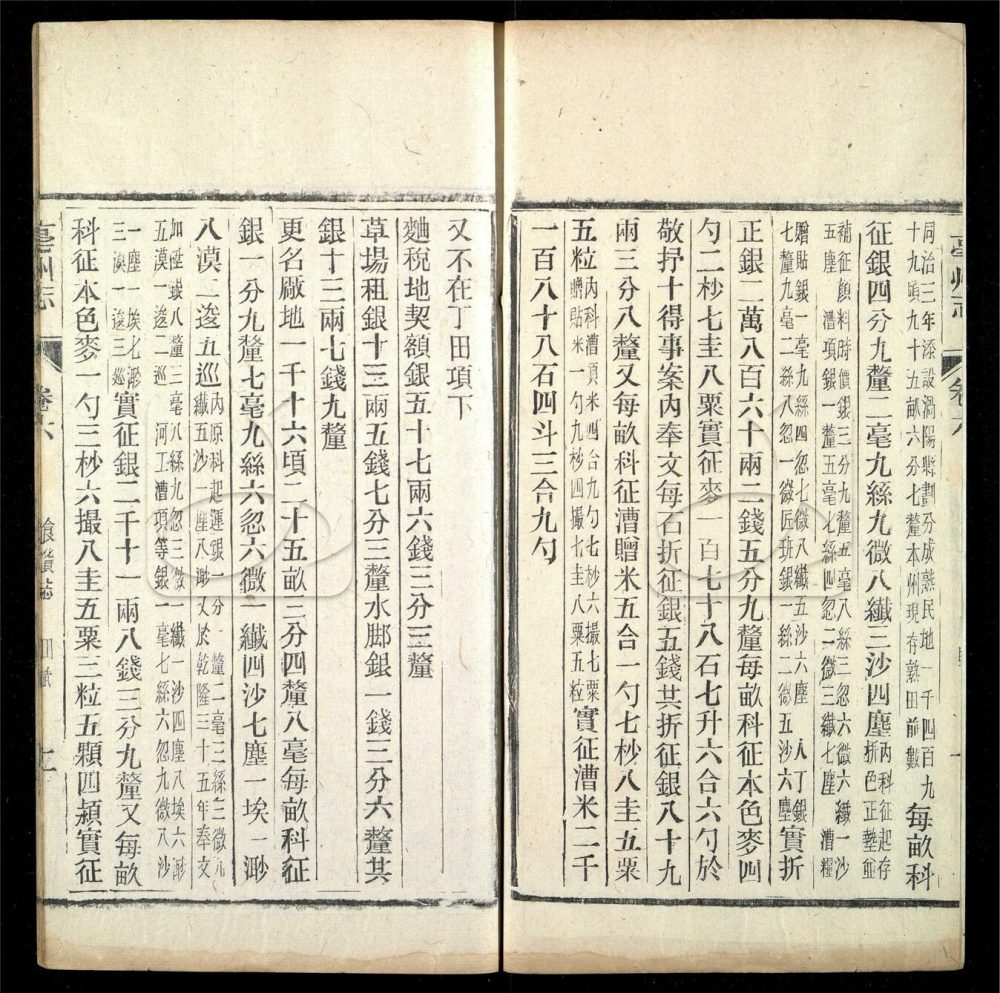 同治三年添設渦陽縣劃分成熟民地一千四百九
十九頃九十五畝六分七釐本州現存熟田前數
每畝科
征銀四分九釐二毫九絲九微八纖三沙四塵
內科征起存
折色正墊並
補征顏料時價銀三分九釐五毫八絲三忽六微六纖一沙
五塵 漕項銀一釐五毫七絲四忽二微三纖七塵 漕糧
贈貼銀一毫九絲四忽七微八纖五沙六塵 人丁銀
七釐九毫二絲八忽一微匠班銀一絲二微五沙六塵
實折
正銀二萬八百六十兩二錢五分九釐每畝科征本色麥四
勺二杪七圭八粟實征麥一百七十八石七升六合六勺於
敬抒十得事案內奉文每石折征銀五錢共折征銀八十九
兩三分八釐又每畝科征漕贈米五合一勺七杪八圭五粟
五粒
內科漕項米四合九勺七杪六撮七粟
贈貼米一勺九杪四撮七圭八粟五粒
實征漕米二千
一百八十八石四斗三合九勺
又不在丁田項下
麯稅地契額銀五十七兩六錢三分三釐
草場租銀十三兩五錢七分三釐水腳銀一錢三分六釐共
銀十三兩七錢九釐
更名廠地一千十六頃二十五畝三分四釐八毫每畝科征
銀一分九釐七毫九絲六忽六微一纖四沙七塵一埃一渺
八漠二逡五巡
內原科起運銀一分一釐二毫三絲三微九
纖五沙一塵八渺又於乾隆三十五年奉文
加陞銀八釐三毫八絲九忽三微一纖一沙四塵八埃六渺
五漠一逡二巡 河工漕項等銀一毫七絲六忽九微八沙
一塵一埃七渺
三漠一逡三巡
實征銀二千十一兩八錢三分九釐又每畝
科征本色麥一勺三杪六撮八圭五粟三粒五顆四潁實征
亳州志
卷六
食貨志 田賦